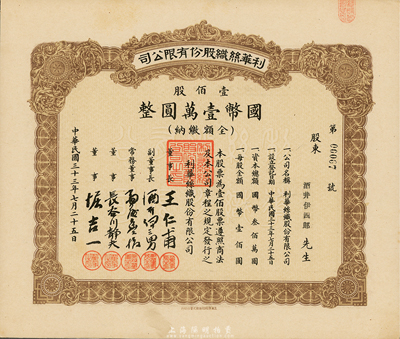 利華絲織股份有限公司
壹佰股
國幣壹萬圓整
(全額繳納)
第 00067 號
股東 酒井伊四郎 先生
一公司名稱 利華絲織股份有限公司
一設立登記日期 中華民國三十三年六月三十五日
一資本總額 國幣叁佰萬圓
一每股金額 國幣壹佰圓
本股票為壹佰股票遵照商法
及本公司章程之規定發行之
利華絲織股份有限公司
董事長 王仁甫
副董事長
常務董事
董事 長谷川靜夫
董事 堀吉一
中華民國三十三年七月二十五日
上海陽明拍賣